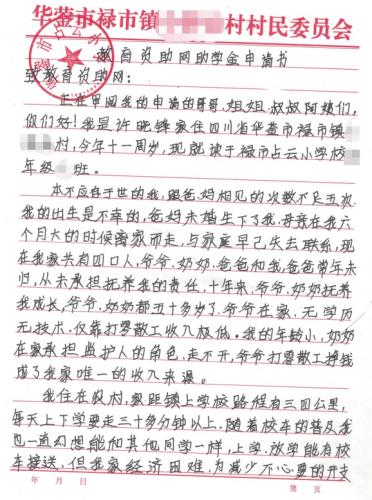 华蓥市禄市镇 村村民委员会
教育资助网助学金申请书
致教育资助网：
正在审阅我的申请的哥哥、姐姐、叔叔、阿姨们，
你们好！我是许晓锋家住四川省华蓥市禄市镇
村，今年十一周岁，现就读于禄市占云小学校
年级 班。
本不应存于世的我，跟爸、妈相见的次数不足五次，
我的出生是不幸的，爸妈未婚生下了我，母亲在我六
个月大的时候离家而走，与家庭早已失去联系，现
在我家共有四口人，爷爷、奶奶、爸爸和我，爸爸常年未
归，从未承担抚养我的责任，十年来，爷爷、奶奶抚养
我成长，爷爷、奶奶都五十多岁了，爷爷在家、无学历
无技术、仅靠打零散工收入极低。我的年龄小，奶奶
在家承担监护人的角色，走不开，爷爷打零散工挣钱
成了我家唯一的收入来源。
我住在农村，家距镇上学校路程有三四公里，
每天上下学要走三十多分钟以上，随着校车的普及我
也一直幻想能和其他同学一样，上学、放学能有校
车接送，但我家经济困难，为减少不必要的开支
年 月 日 第 页